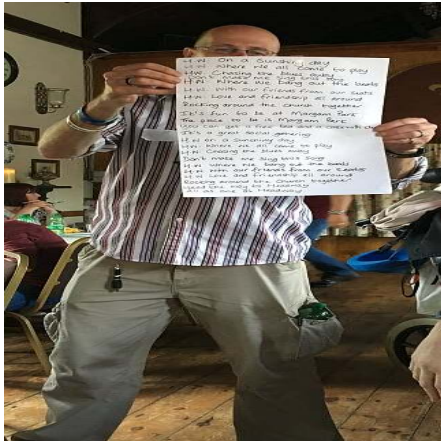 H.W. On a Sunday day
H.W. Where we all come to play
H.W. Chasing the blues away
Don't make me sing this song
H.W. Where we bang out the beats
H.W. With our friends from our seats
H.W. Love and friendship all around
Rocking around the church together
It's fun to be at Margam Park
The place to be is Margam Park
You can get a free tea and a
It's a great social gathering
H.W. on a Sunday day
H.W. Where we all come to play
H.W. Chasing the blues away
Don't make me sing this song
H.W. Where we bang out the beats
H.W. With our friends from our seats
H.W. Love and friendship all around
Rocking around the church together
the way to Headway
All as one is Headway